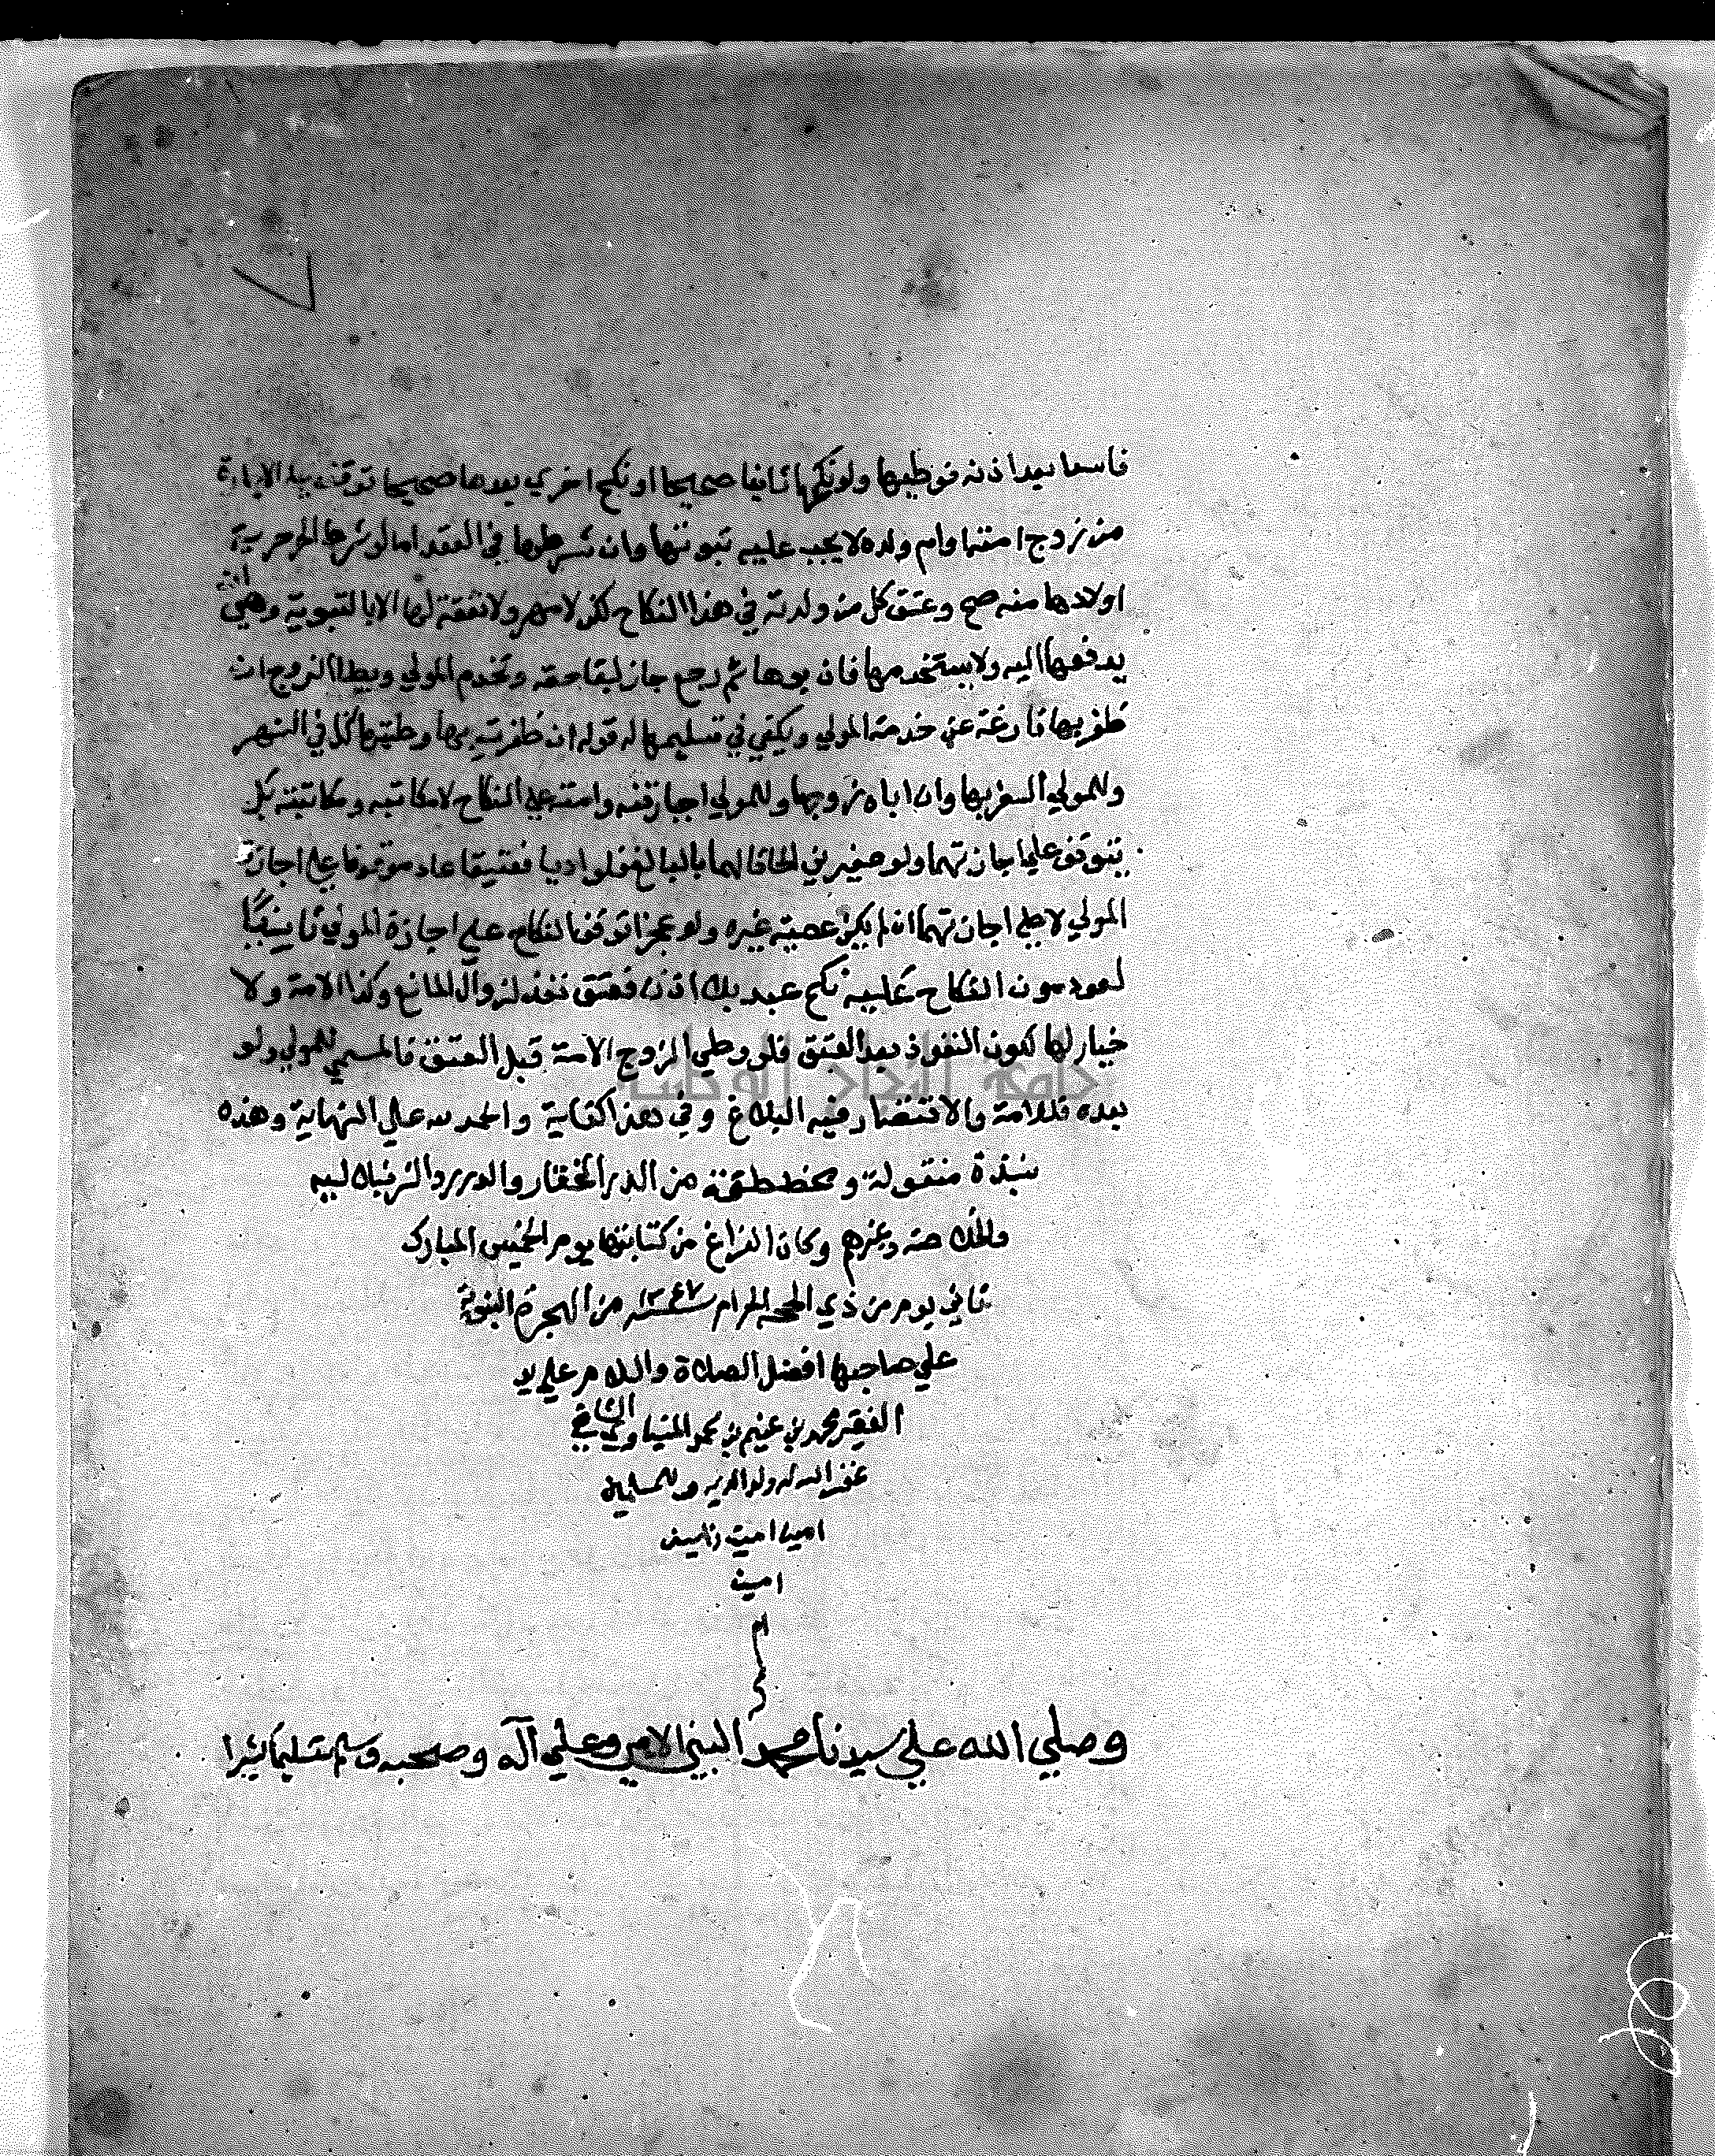 فاسدا بعد اذنه فوطيها ولو نكحها ثانيا صحيحا او نكح اخري بعدها صحيحا توقف علي الاجازة
من زوج امته او ام ولده لا يجب عليه تبوئتها وان شرطها في العقد اما لو شرط الحر حرية
اولادها منه صح وعتق كل من ولدته في هذا النكاح لكن لا مهر ولا نفقة لها الا بالتبوية وهي ان
يدفعها اليه ولا يستخدمها فان بوها ثم رجع جاز لبقا حقه وتخدم المولي ويطا الزوج ان
ظفر بها فارغة عن خدمة المولي ويكفي في تسليمها له قوله ان ظفرت بها وطئتها كذا في النهر
وللمولي السفر بها وان اباه زوجها وللمولي اجبار قنه وامته علي النكاح لا مكاتبه ومكاتبته بل
يتوقف علي اجازتهما ولو صغيرين الحاقا لهما بالبالغ فلو اديا فعتقا عاد موقوفا علي اجازة
المولي لا علي اجازتهما ان لم يكن عصبة غيره ولو عجزا توقف النكاح علي اجازة المولي ثانيا
لعود مون النكاح عليه نكح عبد بلا اذن فعتق نفذ لزوال المانع وكذا الامة ولا
خيار لها لكون النفوذ بعد العتق فلو وطي الزوج الامة قبل العتق فالمسمي للمولي ولو
بعده فللامة والاقتضار فيه البلاغ وفي هذا كفاية والحمد لله علي النهاية وهذه
نبذة منقولة من الدر المختار والدرر
وكان الفراغ من كتابتها يوم الخميس المبارك
ثاني يوم من ذي الحجه الحرام سنة ١٢٤٧ من الهجرة النبوية
علي صاحبها افضل الصلاة والسلام علي يد
الفقير محمد بن غنيم بن محمد المنياوي الشافعي
غفر الله له ولوالديه وللمسلمين
امين امين
امين
م
وصلي الله علي سيدنا محمد النبي الامي وعلي آله وصحبه وسلم تسليما كثيرا
جامعة النجاح الوطنية